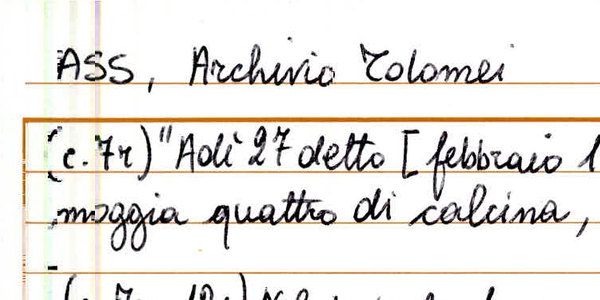 ASS, Archivio Tolomei
(c. 7r) "Adì 27 detto [febbraio 1
moggia quattro di calcina,